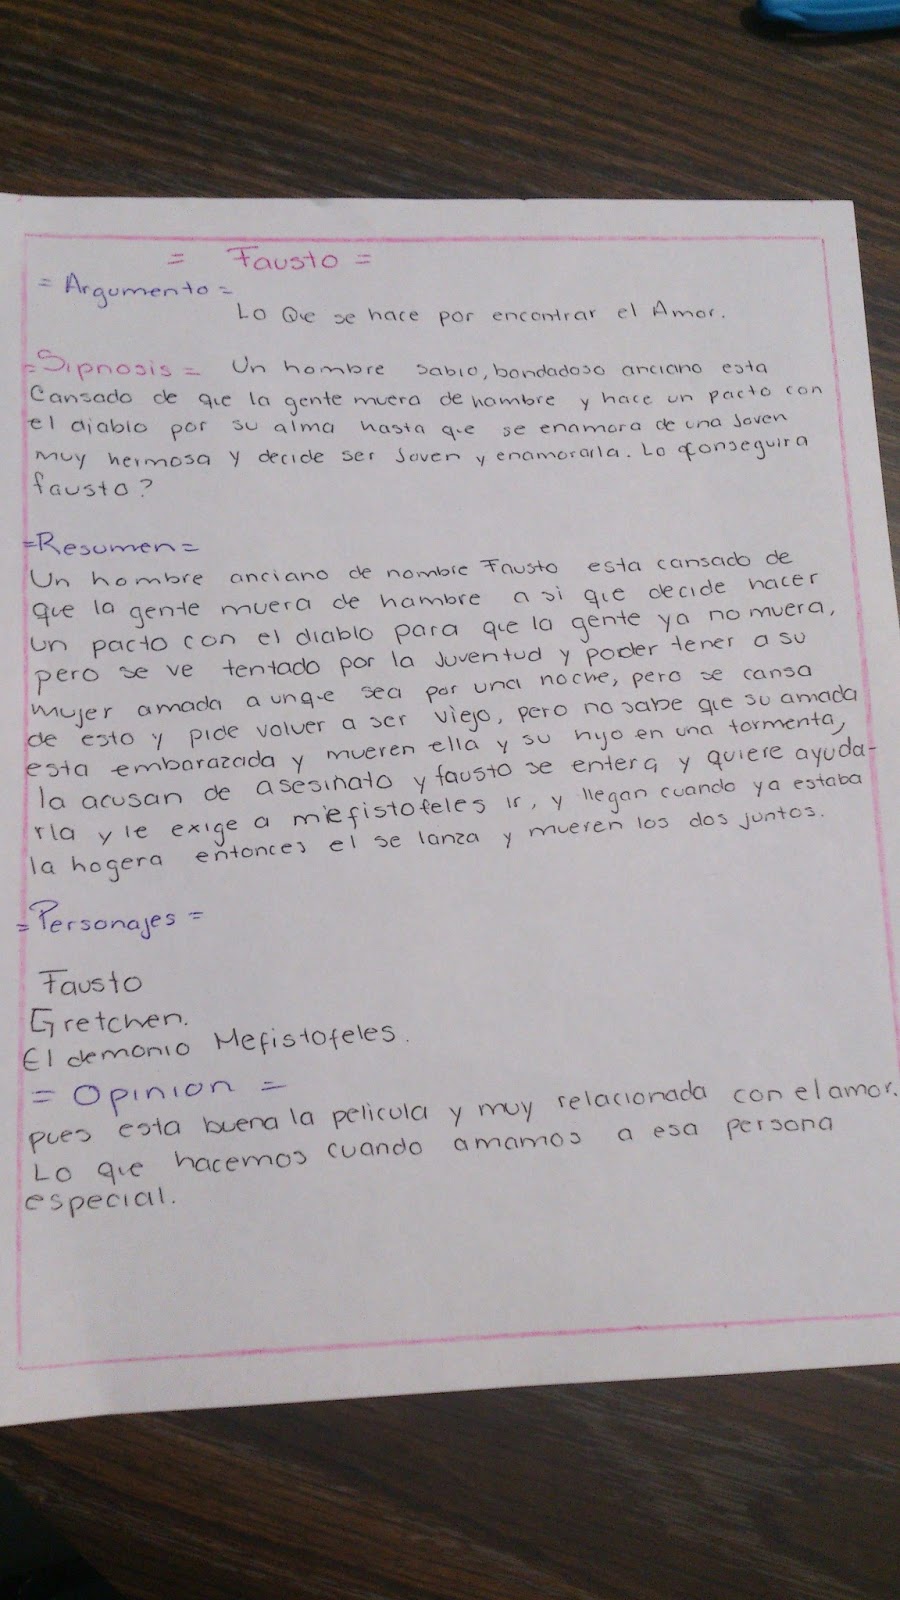 = Fausto =
= Argumento =
Lo Que se hace por encontrar el Amor.
= Sipnosis = Un hombre sabio, bondadoso anciano esta
Cansado de que la gente muera de hambre y hace un pacto con
el diablo por su alma hasta que se enamora de una joven
muy hermosa y decide ser joven y enamorarla. Lo conseguira
fausto?
= Resumen =
Un hombre anciano de nombre Fausto esta cansado de
que la gente muera de hambre a si que decide hacer
un pacto con el diablo para que la gente ya no muera,
pero se ve tentado por la juventud y poder tener a su
mujer amada aunque sea por una noche, pero se cansa
de esto y pide volver a ser viejo, pero no sabe que su amada
esta embarazada y mueren ella y su hijo en una tormenta,
la acusan de asesinato y fausto se entera y quiere ayuda-
rla y le exige a mefistofeles ir, y llegan cuando ya estaba
la hogera entonces el se lanza y mueren los dos juntos.
= Personajes =
Fausto
Gretchen.
El demonio Mefistofeles.
= Opinion =
pues esta buena la pelicula y muy relacionada con el amor.
Lo que hacemos cuando amamos a esa persona
especial.